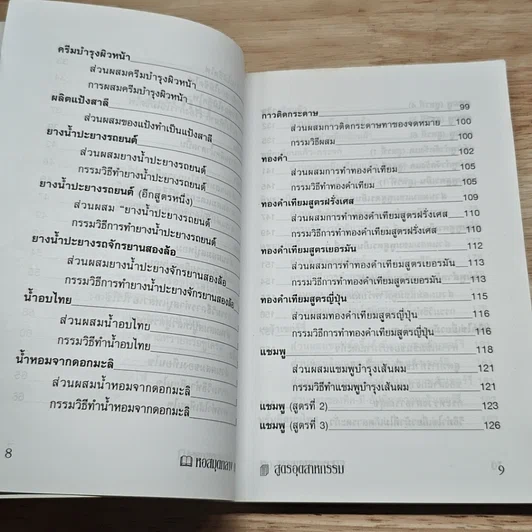 ครีมบำรุงผิวหน้า
ส่วนผสมครีมบำรุงผิวหน้า
การผสมครีมบำรุงผิวหน้า
ผลิตแป้งสาลี
ส่วนผสมของแป้งทำเป็นแป้งสาลี
ยางน้ำปะยางรถยนต์
ส่วนผสมยางน้ำปะยางรถยนต์
กรรมวิธีทำยางน้ำปะยางรถยนต์
ยางน้ำปะยางรถยนต์ (อีกสูตรหนึ่ง)
ส่วนผสม "ยางน้ำปะยางรถยนต์
กรรมวิธีการทำยางน้ำปะยางรถยนต์
ยางน้ำปะยางรถจักรยานสองล้อ
ส่วนผสมยางน้ำปะยางจักรยานสองล้อ
กรรมวิธีการทำยางน้ำปะยางจักรยานสองล้อ
น้ำอบไทย
ส่วนผสมน้ำอบไทย
กรรมวิธีทำน้ำอบไทย
น้ำหอมจากดอกมะลิ
ส่วนผสมน้ำหอมจากดอกมะลิ
กรรมวิธีทำน้ำหอมจากดอกมะลิ
8 หอสมุดกลาง
กาวติดกระดาษ 99
ส่วนผสมกาวติดกระดาษทาซองจดหมาย 100
กรรมวิธีผสม 100
ทองคำ 102
ส่วนผสมการทำทองคำเทียม 105
กรรมวิธีทำทองคำเทียม 105
ทองคำเทียมสูตรฝรั่งเศส 109
ส่วนผสมการทำทองคำเทียมสูตรฝรั่งเศส 110
กรรมวิธีการทำทองคำเทียมสูตรฝรั่งเศส 110
ทองคำเทียมสูตรเยอรมัน 112
ส่วนผสมการทำทองคำเทียมสูตรเยอรมัน 113
กรรมวิธีการทำทองคำเทียมสูตรเยอรมัน 113
ทองคำเทียมสูตรญี่ปุ่น 115
ส่วนผสมทองคำเทียมสูตรญี่ปุ่น 116
กรรมวิธีการทำทองคำเทียมสูตรญี่ปุ่น 116
แชมพู 118
ส่วนผสมแชมพูบำรุงเส้นผม 121
กรรมวิธีทำแชมพูบำรุงเส้นผม 121
แชมพู (สูตรที่ 2) 123
แชมพู (สูตรที่ 3) 126
สูตรอุตสาหกรรม 9